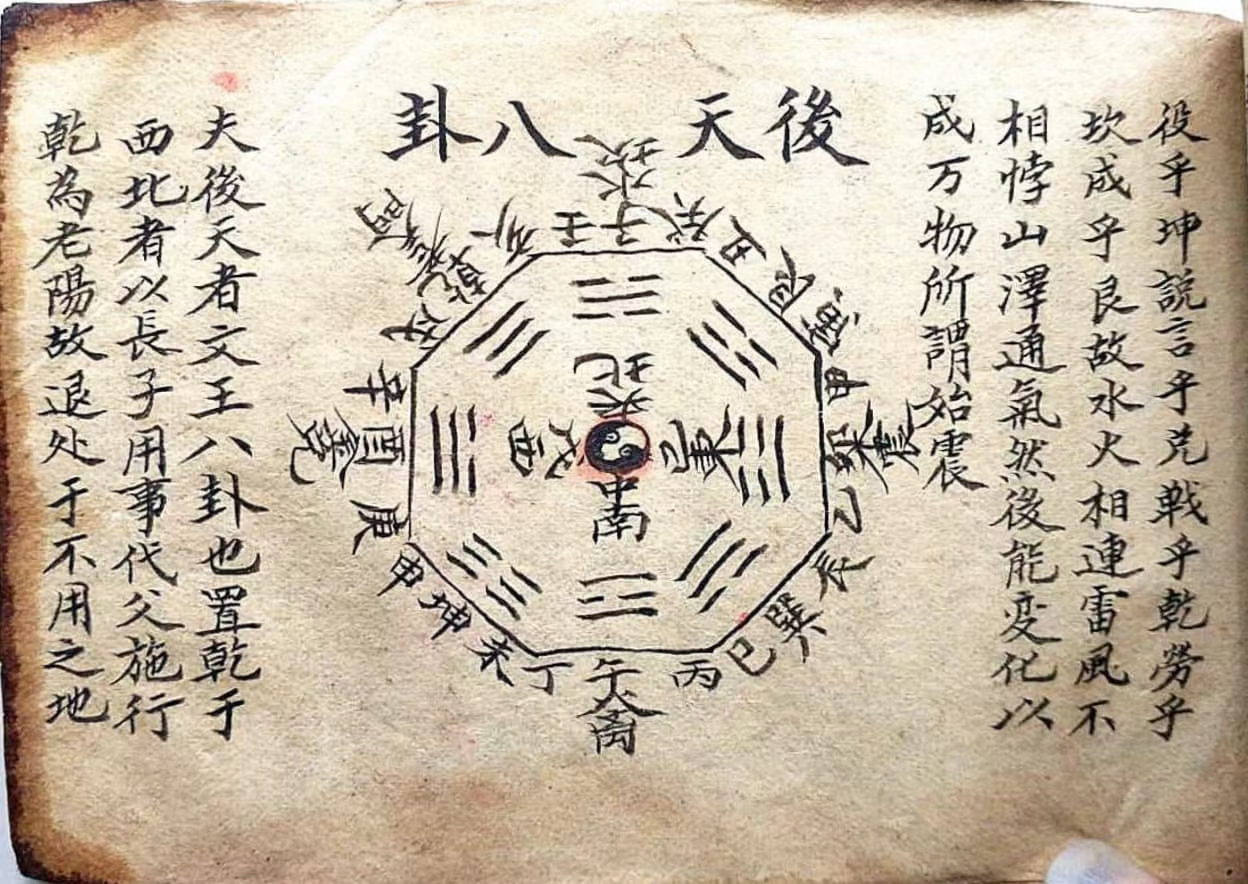 役乎坤説言乎兑戦乎乾勞乎
坎成乎艮故水火相連雷風不
相悖山澤通氣然後能変化以
成万物所謂始震
後天八卦
坎水子
癸
丑
艮
甲
卯
震
乙
巽
巳
丙
午火离
丁
未
坤
申
庚
酉
辛
戌
乾
亥
壬
北
東
己
中
南
西
戊
夫後天者文王八卦也置乾于
西北者以長子用事代父施行
乾為老陽故退处于不用之地